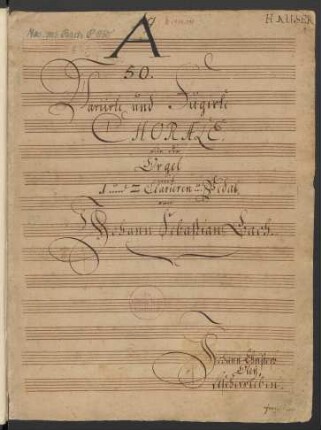 HAUSER
Mus. ms. Bach P
A
50.
Varirte und Fugirte
CHORALE
für die
Orgel
1 und 2 Clavieren u. Pedal
von
Johann Sebastian Bach.
Johann Christoph
Ascherleben.